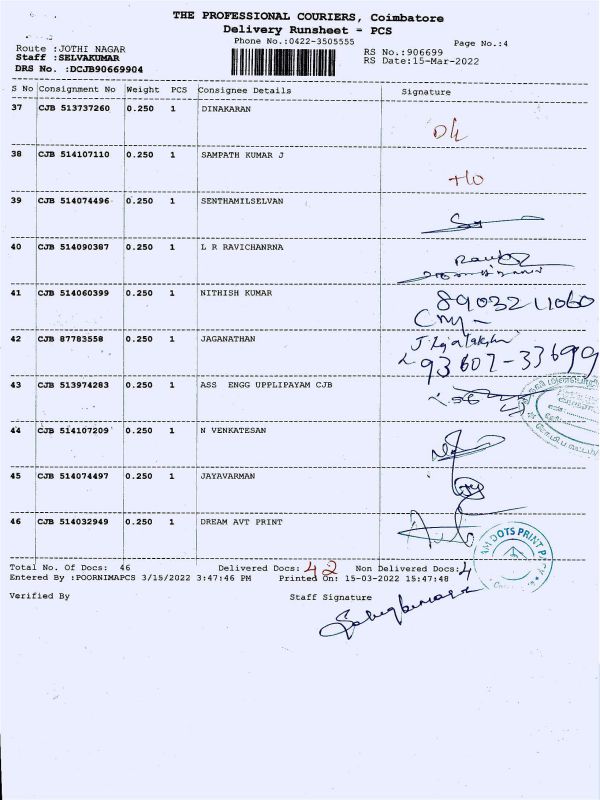 THE PROFESSIONAL COURIERS, Coimbatore
Delivery Runsheet - PCS
Phone No.:0422-3505555
Page No.:4
Route :JOTHI NAGAR
Staff :SELVAKUMAR
DRS No. :DCJB90669904
RS No.:906699
RS Date:15-Mar-2022
S No Consignment No Weight PCS Consignee Details Signature
37 CJB 513737260 0.250 1 DINAKARAN
38 CJB 514107110 0.250 1 SAMPATH KUMAR J
39 CJB 514074496 0.250 1 SENTHAMILSELVAN
40 CJB 514090387 0.250 1 L R RAVICHANRNA
41 CJB 514060399 0.250 1 NITHISH KUMAR
42 CJB 87783558 0.250 1 JAGANATHAN
93607-33699
43 CJB 513974283 0.250 1 ASS ENGG UPPLIPAYAM CJB
44 CJB 514107209 0.250 1 N VENKATESAN
45 CJB 514074497 0.250 1 JAYAVARMAN
46 CJB 514032949 0.250 1 DREAM AVT PRINT
DOTS PRINT
Total No. Of Docs: 46 Delivered Docs: 42 Non Delivered Docs: 4
Entered By :POORNIMAPCS 3/15/2022 3:47:46 PM Printed On: 15-03-2022 15:47:48
Verified By Staff Signature